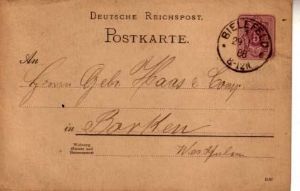 DEUTSCHE REICHSPOST.
POSTKARTE.
BIELEFELD
29
88
8-12V.
An
Herrn Gebr. Haas & Comp.
in Borken
Wohnung
(Strasse und Hausnummer)
Westfalen